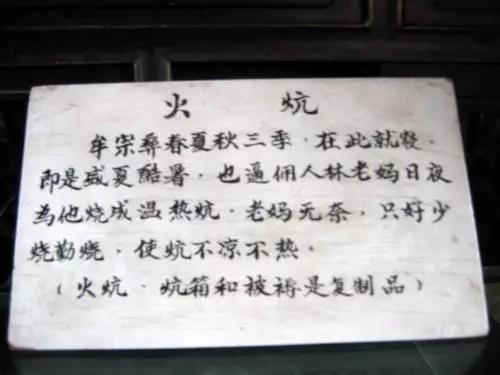 火 炕
牟宗彝春夏秋三季，在此就寝，
即是盛夏酷暑，也逼佣人林老妈日夜
为他烧成温热炕。老妈无奈，只好少
烧勤烧，使炕不凉不热。
（火炕、炕箱和被褥是复制品）